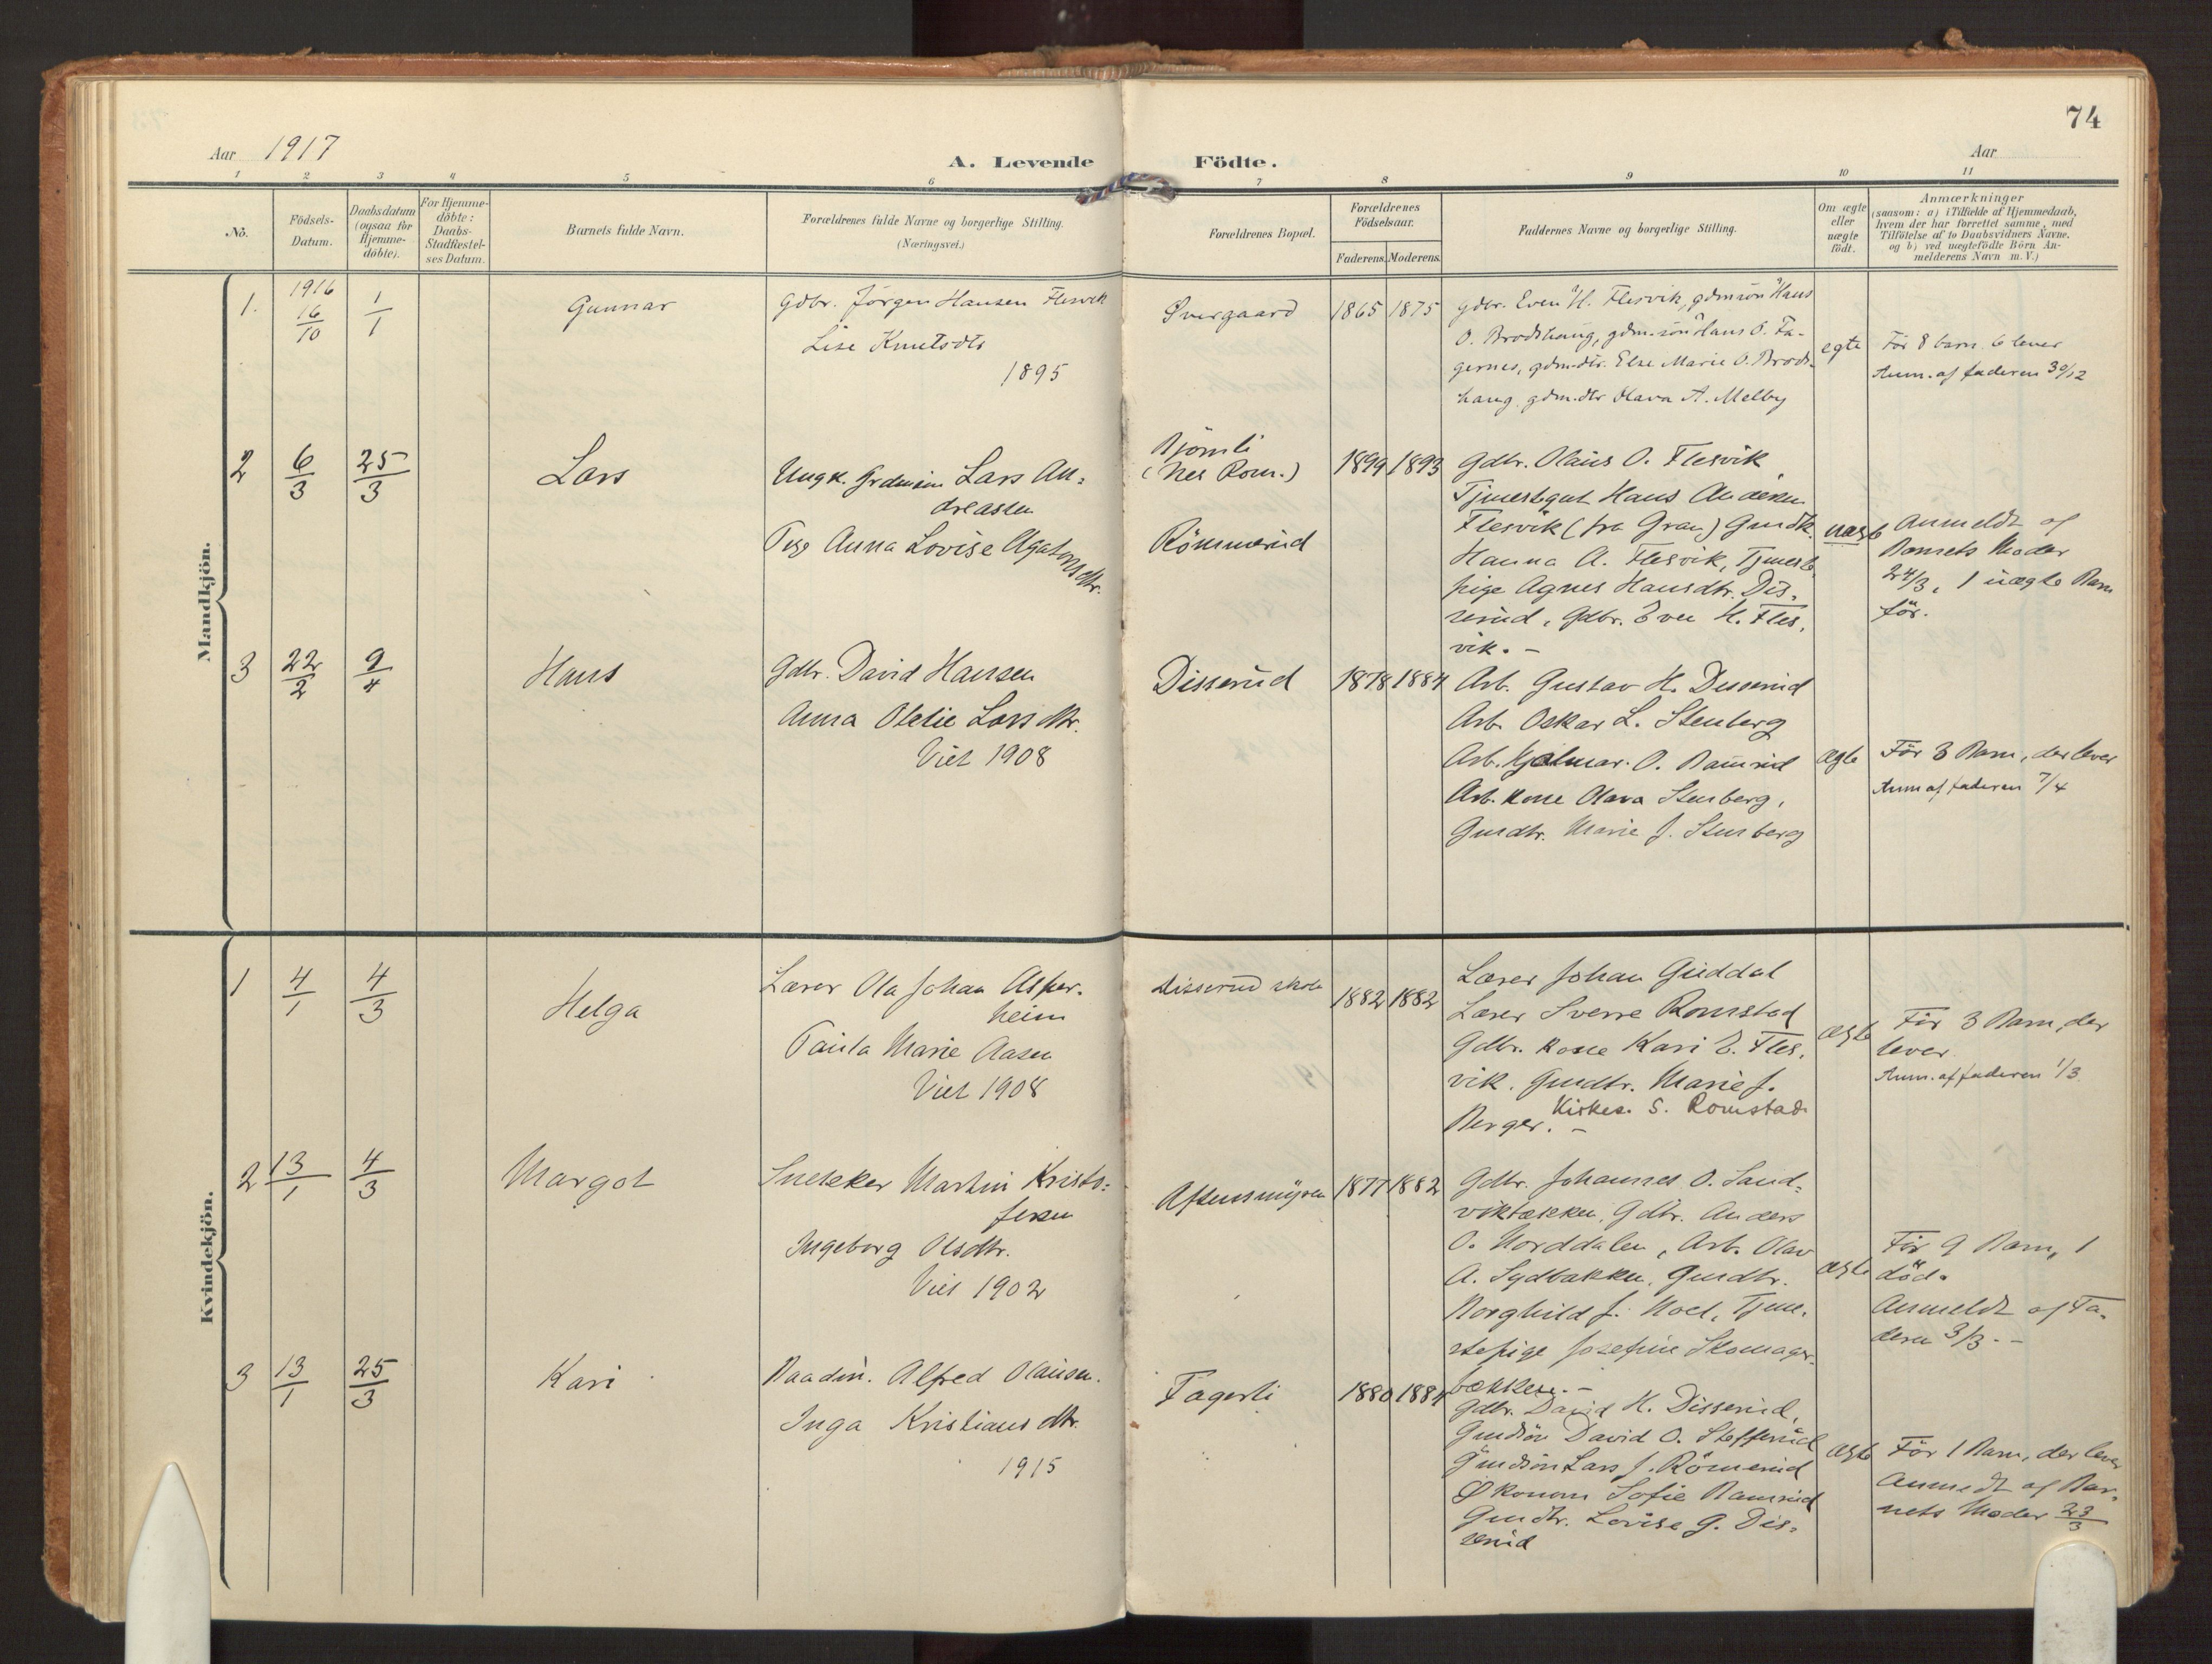 74
Aar 1917
A. Levende Födte.
Aar
1 2 3 4 5 6 7 8 9 10 11
No.
Födsels-
Datum.
Daabsdatum
(ogsaa for
Hjemme-
döbte).
For Hjemme-
döbte:
Daabs-
Stadfæstel-
ses Datum.
Barnets fulde Navn.
Forældrenes fulde Navne og borgerlige Stilling.
(Næringsvei.)
Forældrenes Bopæl.
Forældrenes
Födselsaar.
Faderens. Moderens.
Faddernes Navne og borgerlige Stilling.
Om ægte
eller
uægte
födt.
Anmærkninger
(saasom: a) i Tilfælde af Hjemmedaab,
hvem der har forrettet samme, med
Tilföielse af to Daabsvidners Navne.
og b) ved uægtefödte Börn An-
melderens Navn m. V.)
Mandkjön.
1. 1916 16/10 1/1
Gunnar
Gdbr. Jörgen Hansen Flesvik
Lise Knutsdtr
1895
Øvergaard
1865 1875
gdbr. Even H. Flesvik, gdmsön Hans
O. Brodshaug, gdm.sön Hans O. Fa-
gernes, gdm-dtr. Else Marie O. Brods-
haug, gdm.dtr Olava A. Melby
egte
För 8 barn. 6 lever
Anm. af faderen 30/12
2 6/3 25/3
Lars
Ungk. Grdmsön Lars An-
dreassen
Pige Anna Lovise Agatonsdtr.
Björnli
(Nes Rom.)
Römmerud
1899 1893
Gdbr. Olaus O. Flesvik,
Tjenestegut Hans Andersen
Flesvik (fra Gran) Gmdk.
Hanna A. Flesvik, Tjeneste
pige Agnes Hansdtr. Dis-
serud, Gdbr. Even H. Fles,
vik. –
uægte
Anmeldt af
Barnets Moder
24/3, 1 uægte Barn
för.
3 22/2 9/4
Hans
Gdbr. David Hansen
Anna Oletie Larsdtr.
Viet 1908
Disserud
1878 1884
Arb. Gustav H. Disserud
Arb. Oskar L. Stenberg
Arb. Hjalmar O. Ramrud
Arb. kone Olava Stenberg,
Gmdtr. Marie J. Stenberg
ægte
För 3 Barn, der lever
Anm af faderen 7/4
Kvindekjön.
1 4/1 4/3
Helga
Lærer Ola Johan Asper-
heim
Paula Marie Aasen
Viet 1908
Disserud skole
1882 1882
Lærer Johan Guddal
Lærer Sverre Romstad
Gdbr. kone Kari E. Fles,
vik. Gmdtr. Marie J.
Berger. – Kirkes. S. Romstad.
ægte
För 3 Barn, der
lever.
Anm. af faderen 1/3.
2 13/1 4/3
Margot
Snekker Martin Kristo-
fersen
Ingeborg Olsdtr.
Viet 1902
Aftensmyren
1877 1882
Gdbr. Johannes O. Sand-
vikbakken, Gdbr. Anders
O. Norddalen, Arb. Olav
A. Sydbakken, Gmdtr.
Borghild J. Moel, Tjene-
stepige Josefine Skomager-
bækken. –
ægte
För 9 Barn, 1
död.
Anmeldt af Fa-
deren 3/3. –
3 13/1 25/3
Kari
Baadm. Alfred Olausen.
Inga Kristiansdtr.
1915
Fagerli
1880 1884
Gdbr. David H. Disserud,
Gmdsön David O. Stefferud
Gmdsön Lars J. Römerud
Økonom Sofie Ramrud
Gmdtr. Lovise G. Dis-
serud
ægte
För 1 Barn, der lever
Anmeldt af Bar-
nets Moder 23/3